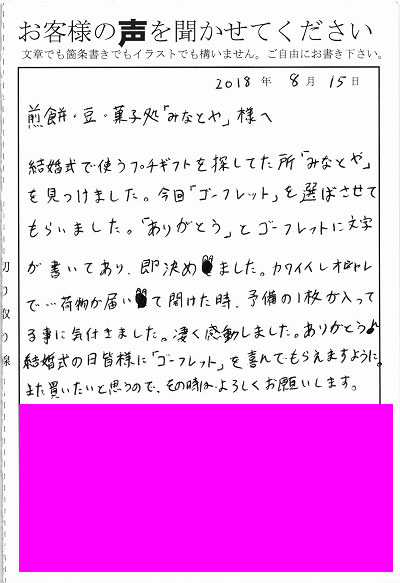 お客様の声を聞かせてください
文章でも箇条書きでもイラストでも構いません。ご自由にお書き下さい。
2018 年 8 月 15 日
煎餅・豆・菓子処「みなとや」様へ
結婚式で使うプチギフトを探してた所「みなとや」
を見つけました。今回「ゴーフレット」を選ばさせて
もらいました。「ありがとう」とゴーフレットに文字
が書いてあり、即決めました。カワイイしオシャレ
で…荷物が届いて開けた時、予備の1枚が入って
る事に気付きました。凄く感動しました。ありがとう♪
結婚式の日皆様に「ゴーフレット」を喜んでもらえますように。
また買いたいと思うので、その時はよろしくお願いします。
切り取り線